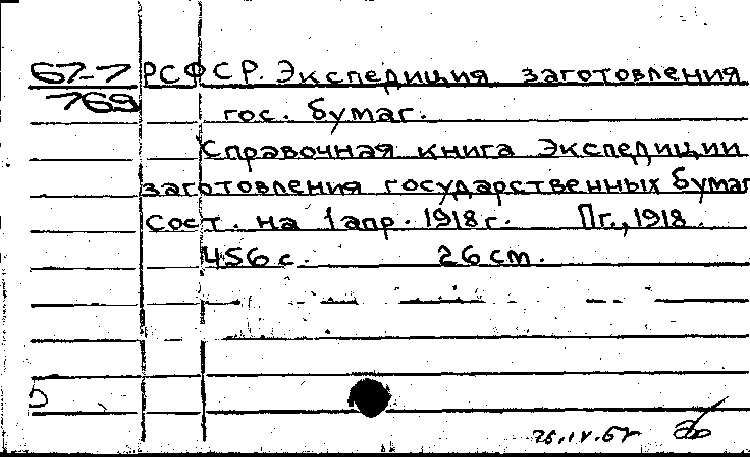 67-7 РСФСР. Экспедиция заготовления
769 гос. бумаг.
Справочная книга Экспедиции
заготовления государственных бумаг
Сост. на 1 апр. 1918 г. Пг., 1918.
456 с. 26 cm.